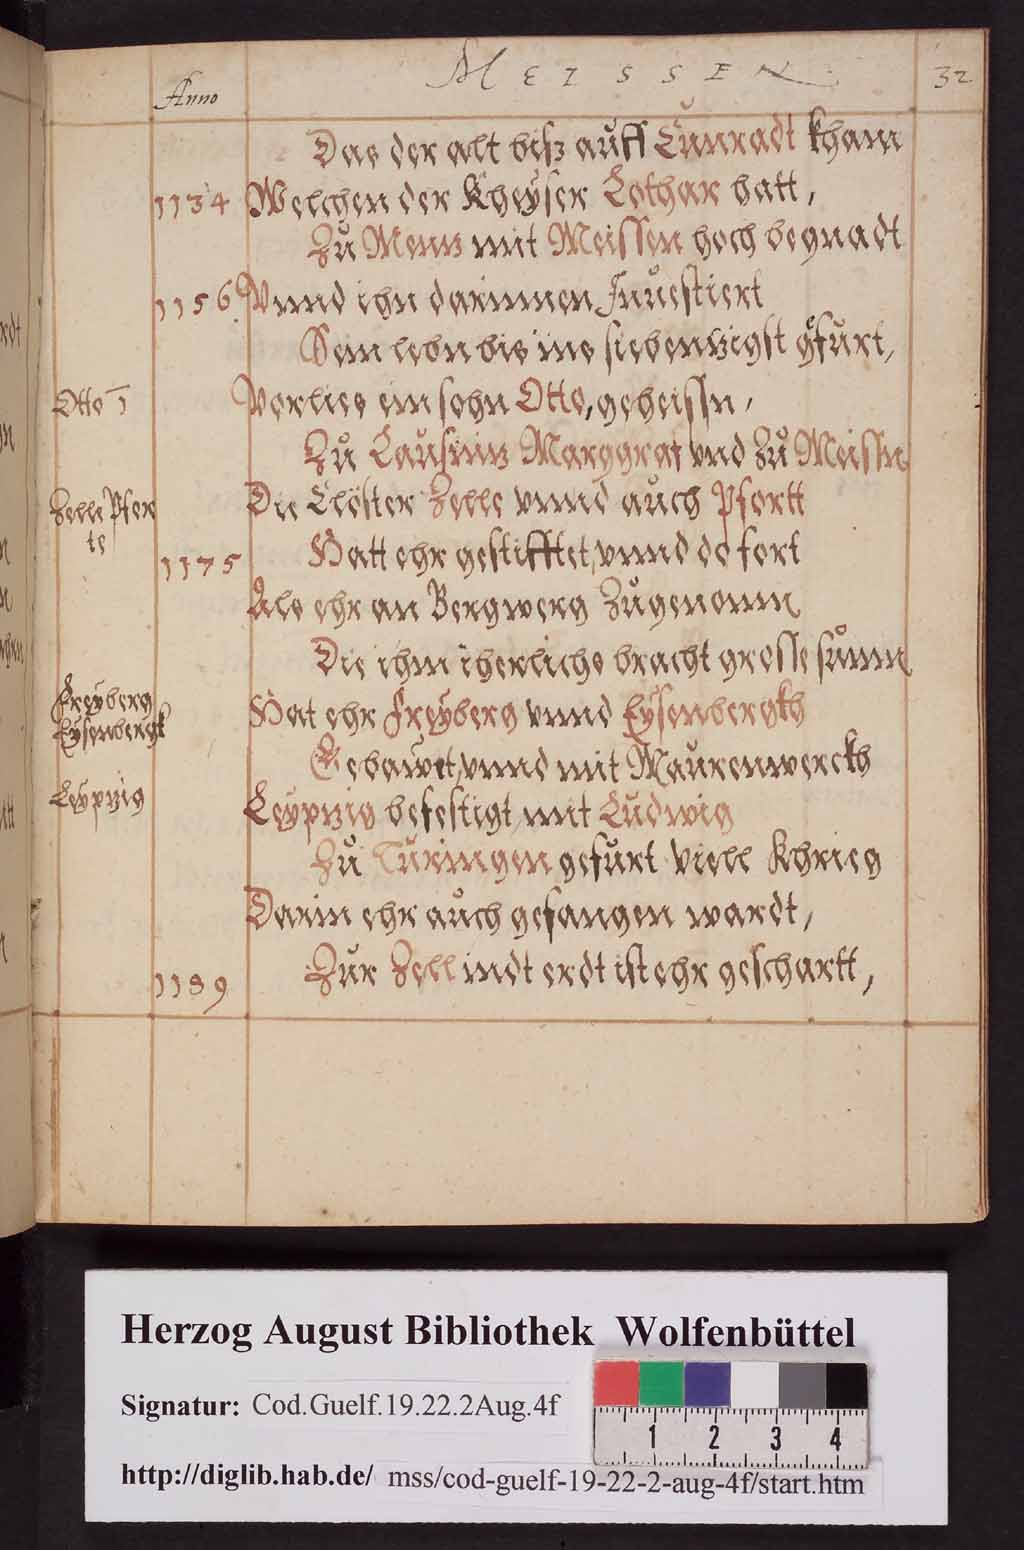 Anno
MEISSEN
32
Das der alt bisz auff Cunradt kham
1134 Welchen der Kheyser Lothar hatt,
Zu Mentz mit Meissen hoch begnadt
1156. Vnnd ihn darinnen Inuestiert
Sein lebn bis ins siebentzigst gfürt,
Otto 1
Verlies ein sohn Otto, geheissn,
Zu Lausnitz Marggraf vnd Zu Meissn
Zelle Pfor
te
Die Clöster Zelle vnnd auch Pfortt
1175
Hatt ehr gestifftet, vnnd do fort
Als ehr an Bergwerg Zugenomn
Die ihm iherlichs bracht grosse sumn
Freyberg
Eysenbergk
Hat ehr Freyberg vnnd Eysenbergkh
Gebawet, vnnd mit Maurenwerckh
Leyptzig
Leyptzig befestigt mit Ludwig
Zu Turingen gefurt viell Khrieg
Darin ehr auch gefangen wardt,
1189
Zur Zell indt erdt ist ehr gescharrt,
Herzog August Bibliothek Wolfenbüttel
Signatur: Cod.Guelf.19.22.2Aug.4f
1 2 3 4
http://diglib.hab.de/ mss/cod-guelf-19-22-2-aug-4f/start.htm